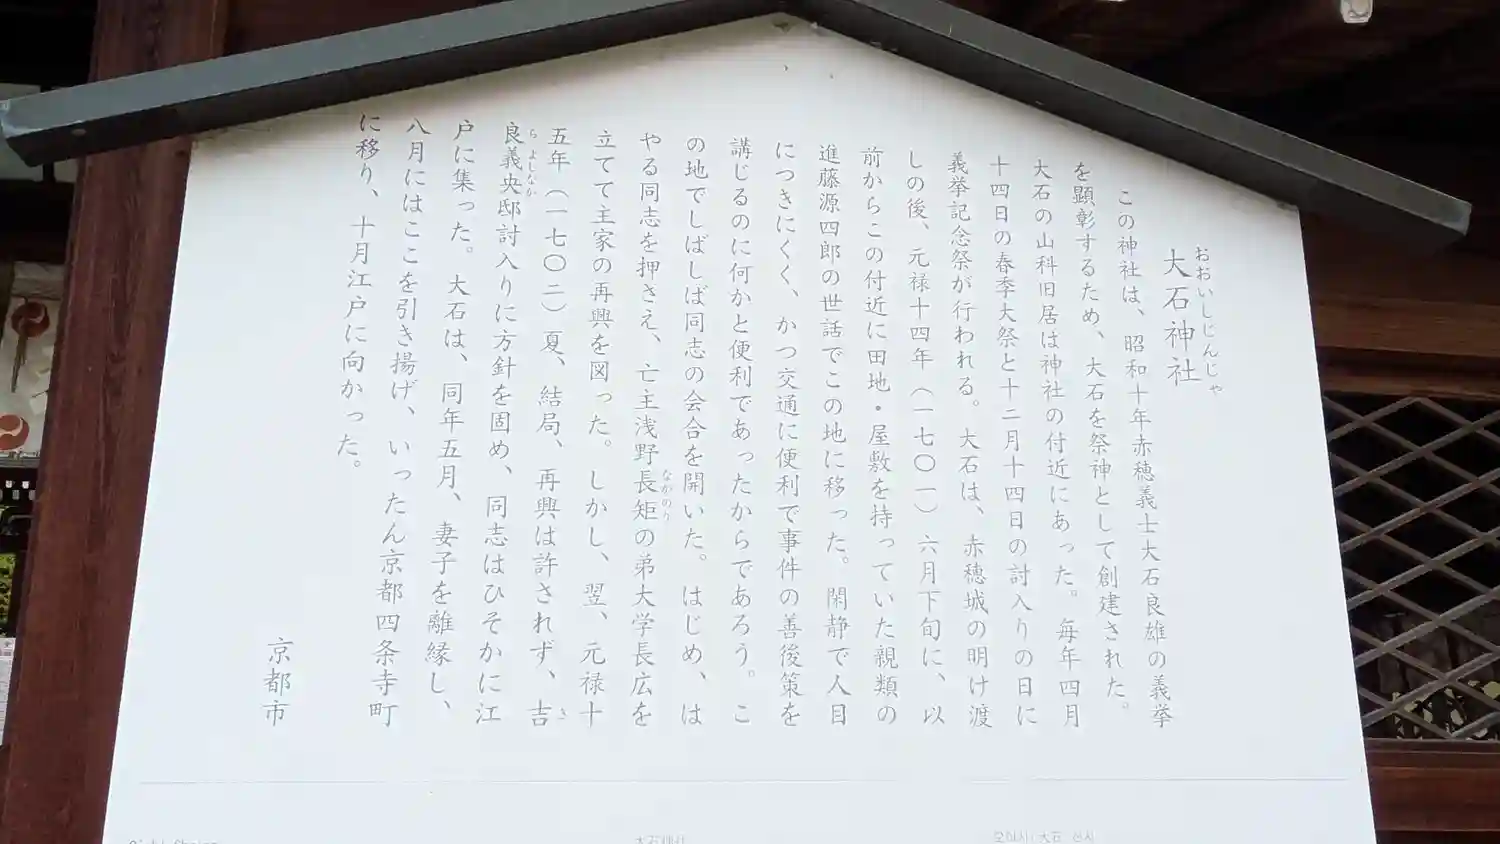 おおいしじんじゃ
大石神社
この神社は、昭和十年赤穂義士大石良雄の義挙
を顕彰するため、大石を祭神として創建された。
大石の山科旧居は神社の付近にあった。毎年四月
十四日の春季大祭と十二月十四日の討入りの日に
義挙記念祭が行われる。大石は、赤穂城の明け渡
しの後、元禄十四年(一七〇一)六月下旬に、以
前からこの付近に田地・屋敷を持っていた親類の
進藤源四郎の世話でこの地に移った。閑静で人目
につきにくく、かつ交通に便利で事件の善後策を
講じるのに何かと便利であったからであろう。こ
の地でしばしば同志の会合を開いた。はじめ、は
やる同志を押さえ、亡主浅野長矩の弟大学長広を
ながのり
立てて主家の再興を図った。しかし、翌、元禄十
五年(一七〇二)夏、結局、再興は許されず、吉
き
良義央邸討入りに方針を固め、同志はひそかに江
ら よしなか
戸に集った。大石は、同年五月、妻子を離縁し、
八月にはここを引き揚げ、いったん京都四条寺町
に移り、十月江戸に向かった。
京都市